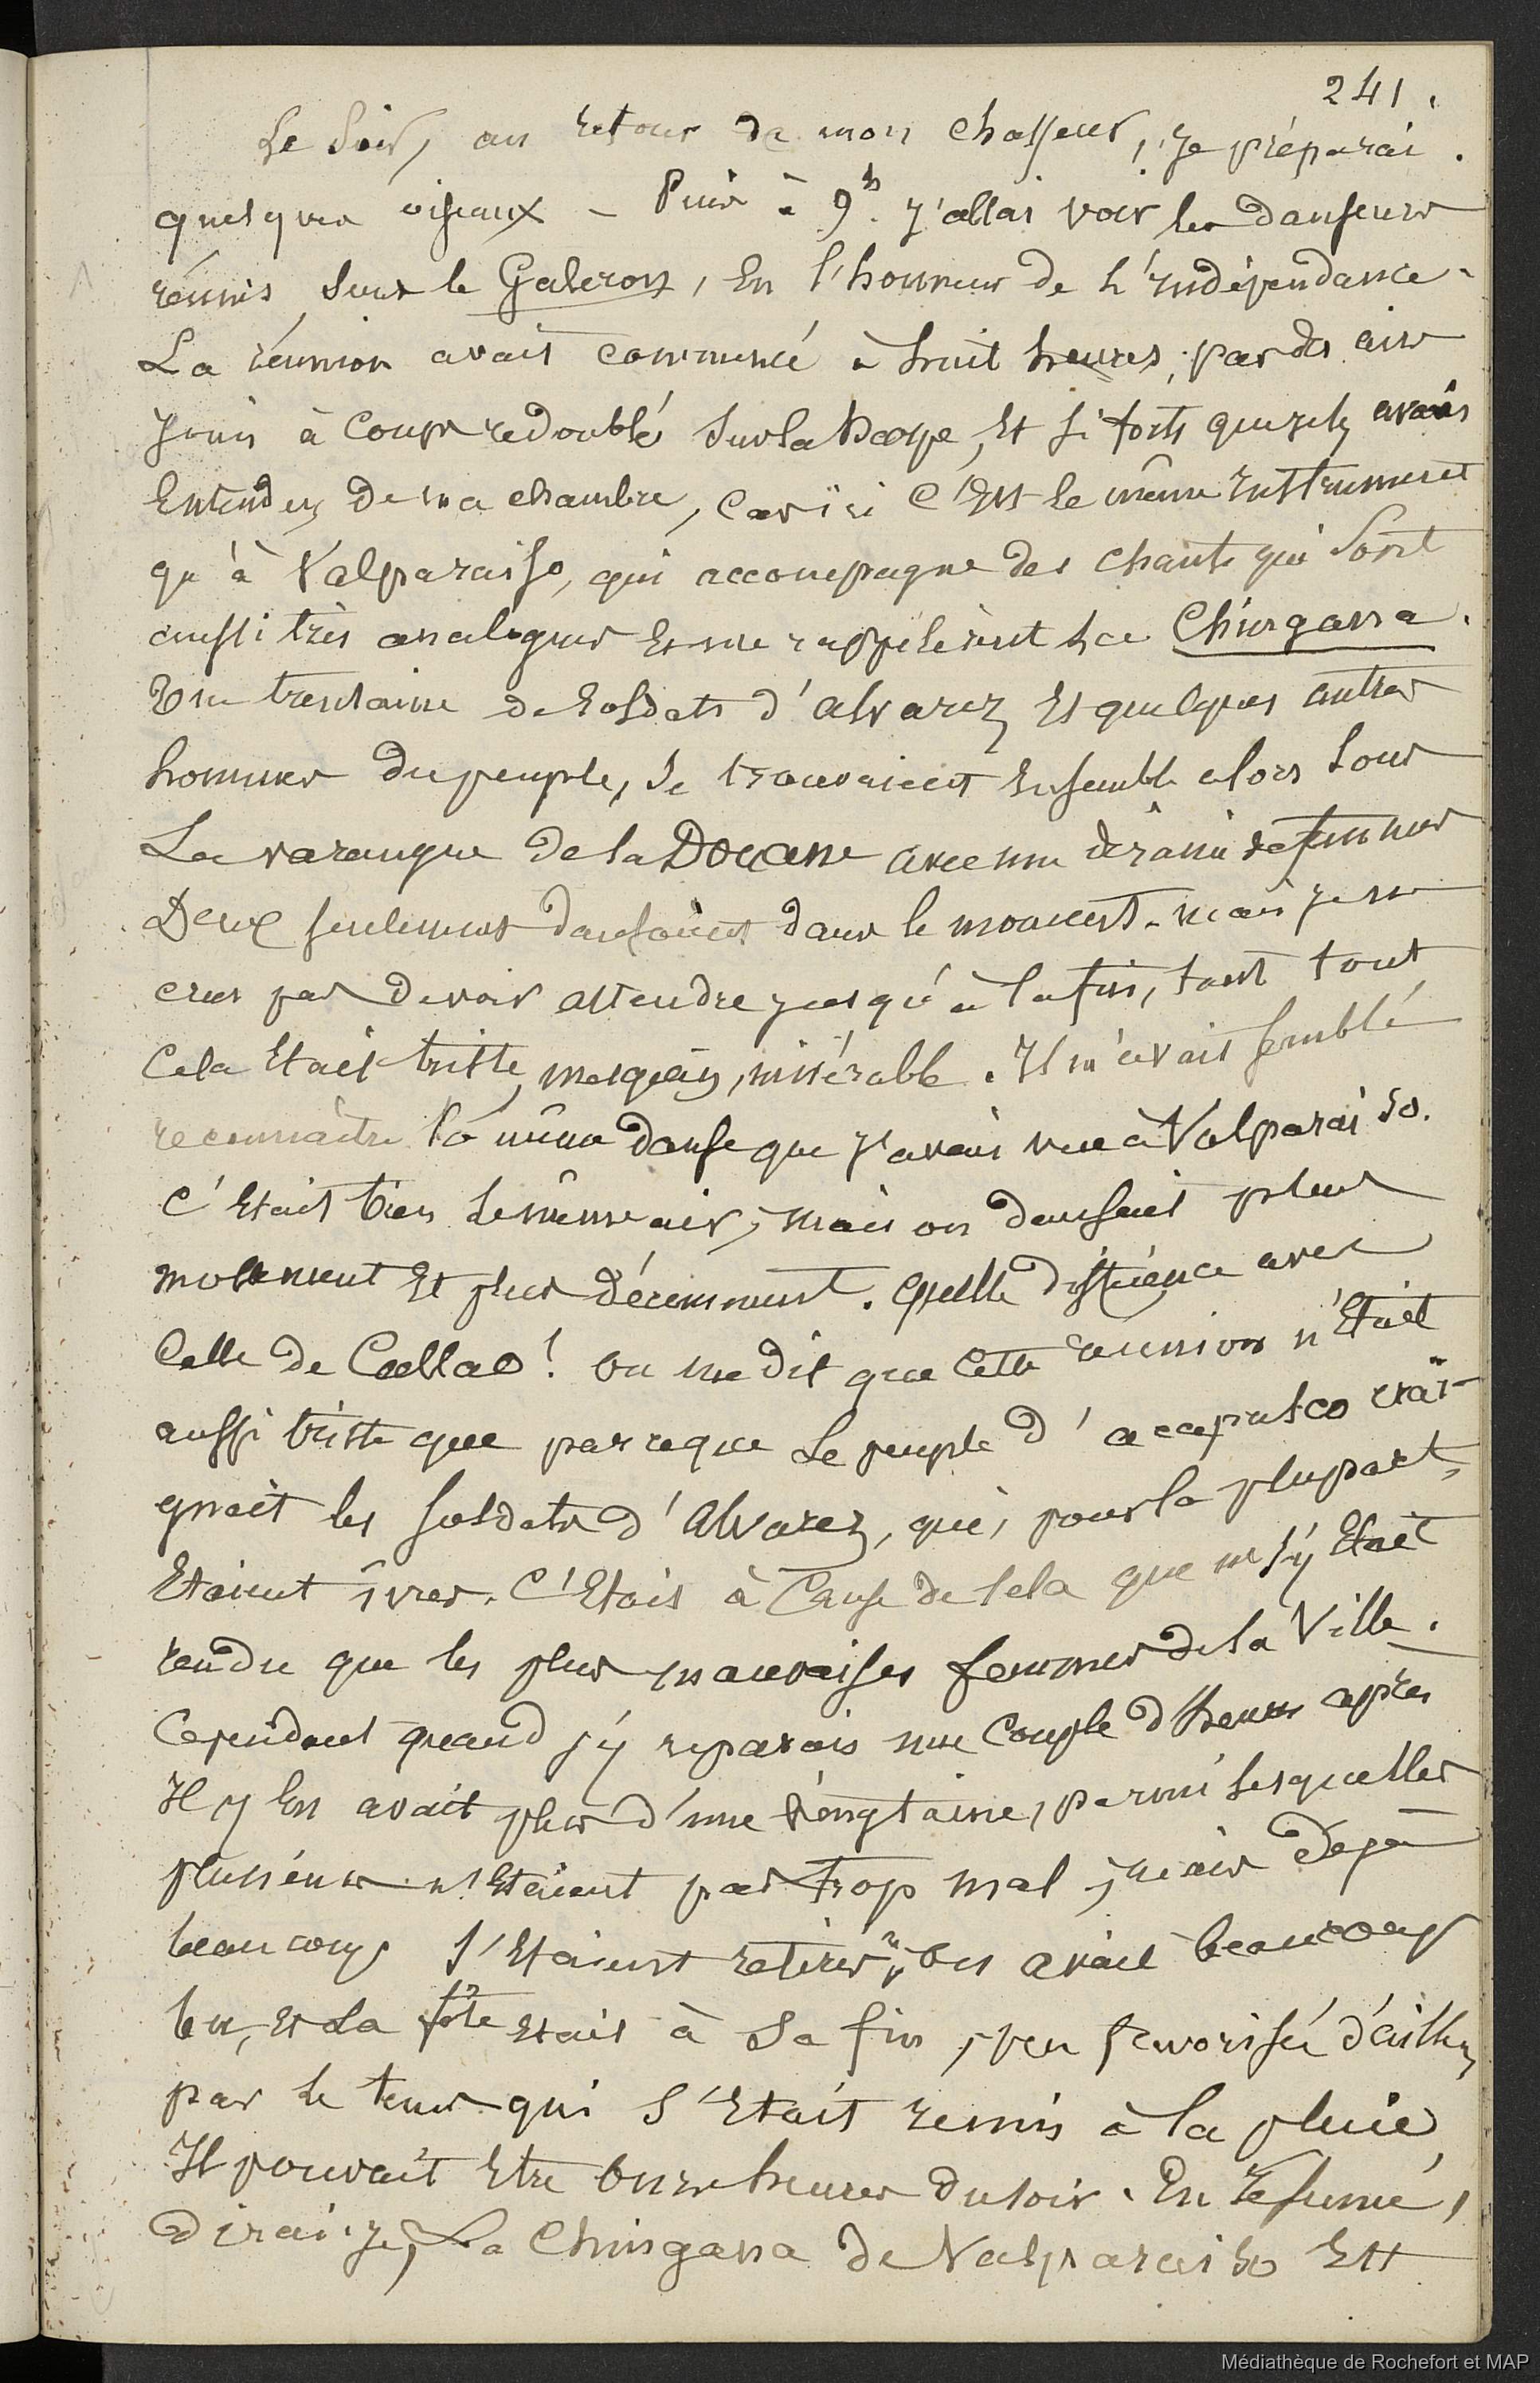 241.
Le soir, au retour de mon chasseur, je préparai
quelques oiseaux - Puis à 9h. j'allai voir les danseurs
réunis sur le Galeron, en l'honneur de l'indépendance.
La réunion avait commencé à huit heures, par des airs
joués à coups redoublés sur la harpe, et si forts que je les avais
entendus de ma chambre, car ici c'est le même instrument
qu'à Valparaiso, qui accompagne des chants qui sont
aussi très analogues et me rappelèrent la Chingana.
Une trentaine de soldats d'Alvarez et quelques autres
hommes du peuple, se trouvaient ensemble alors sous
la varangue de la Douane avec une dizaine de femmes
Deux seulement dansaient dans le moment. mais je ne
crus pas devoir attendre jusqu'à la fin, tant tout
cela était triste, mesquin, misérable. Il m'avait semblé
reconnaître la même danse que j'avais vue à Valparaiso.
C'était bien le même air, mais on dansait plus
mollement et plus décemment. Quelle différence avec
celle de Callao! On me dit que cette réunion n'était
aussi triste que parceque le peuple d'accapulco crai-
gnait les soldats d'Alvarez, qui, pour la plupart,
étaient ivres. C'était à cause de cela que ne s'y était
rendu que les plus mauvaises femmes de la Ville.
Cependant quand j'y reparais une couple d'heures après
Il y en avait plus d'une vingtaine, parmi lesquelles
plusieurs n'étaient pas trop mal, mais déjà
beaucoup s'étaient retirées, on avait beaucoup
bu, et la fête était à sa fin, peu favorisée d'ailleurs
par le tems qui s'était remis à la pluie
Il pouvait être onze heures du soir. En résumé,
dirai-je, La Chingana de Valparaiso est
Médiathèque de Rochefort et MAP